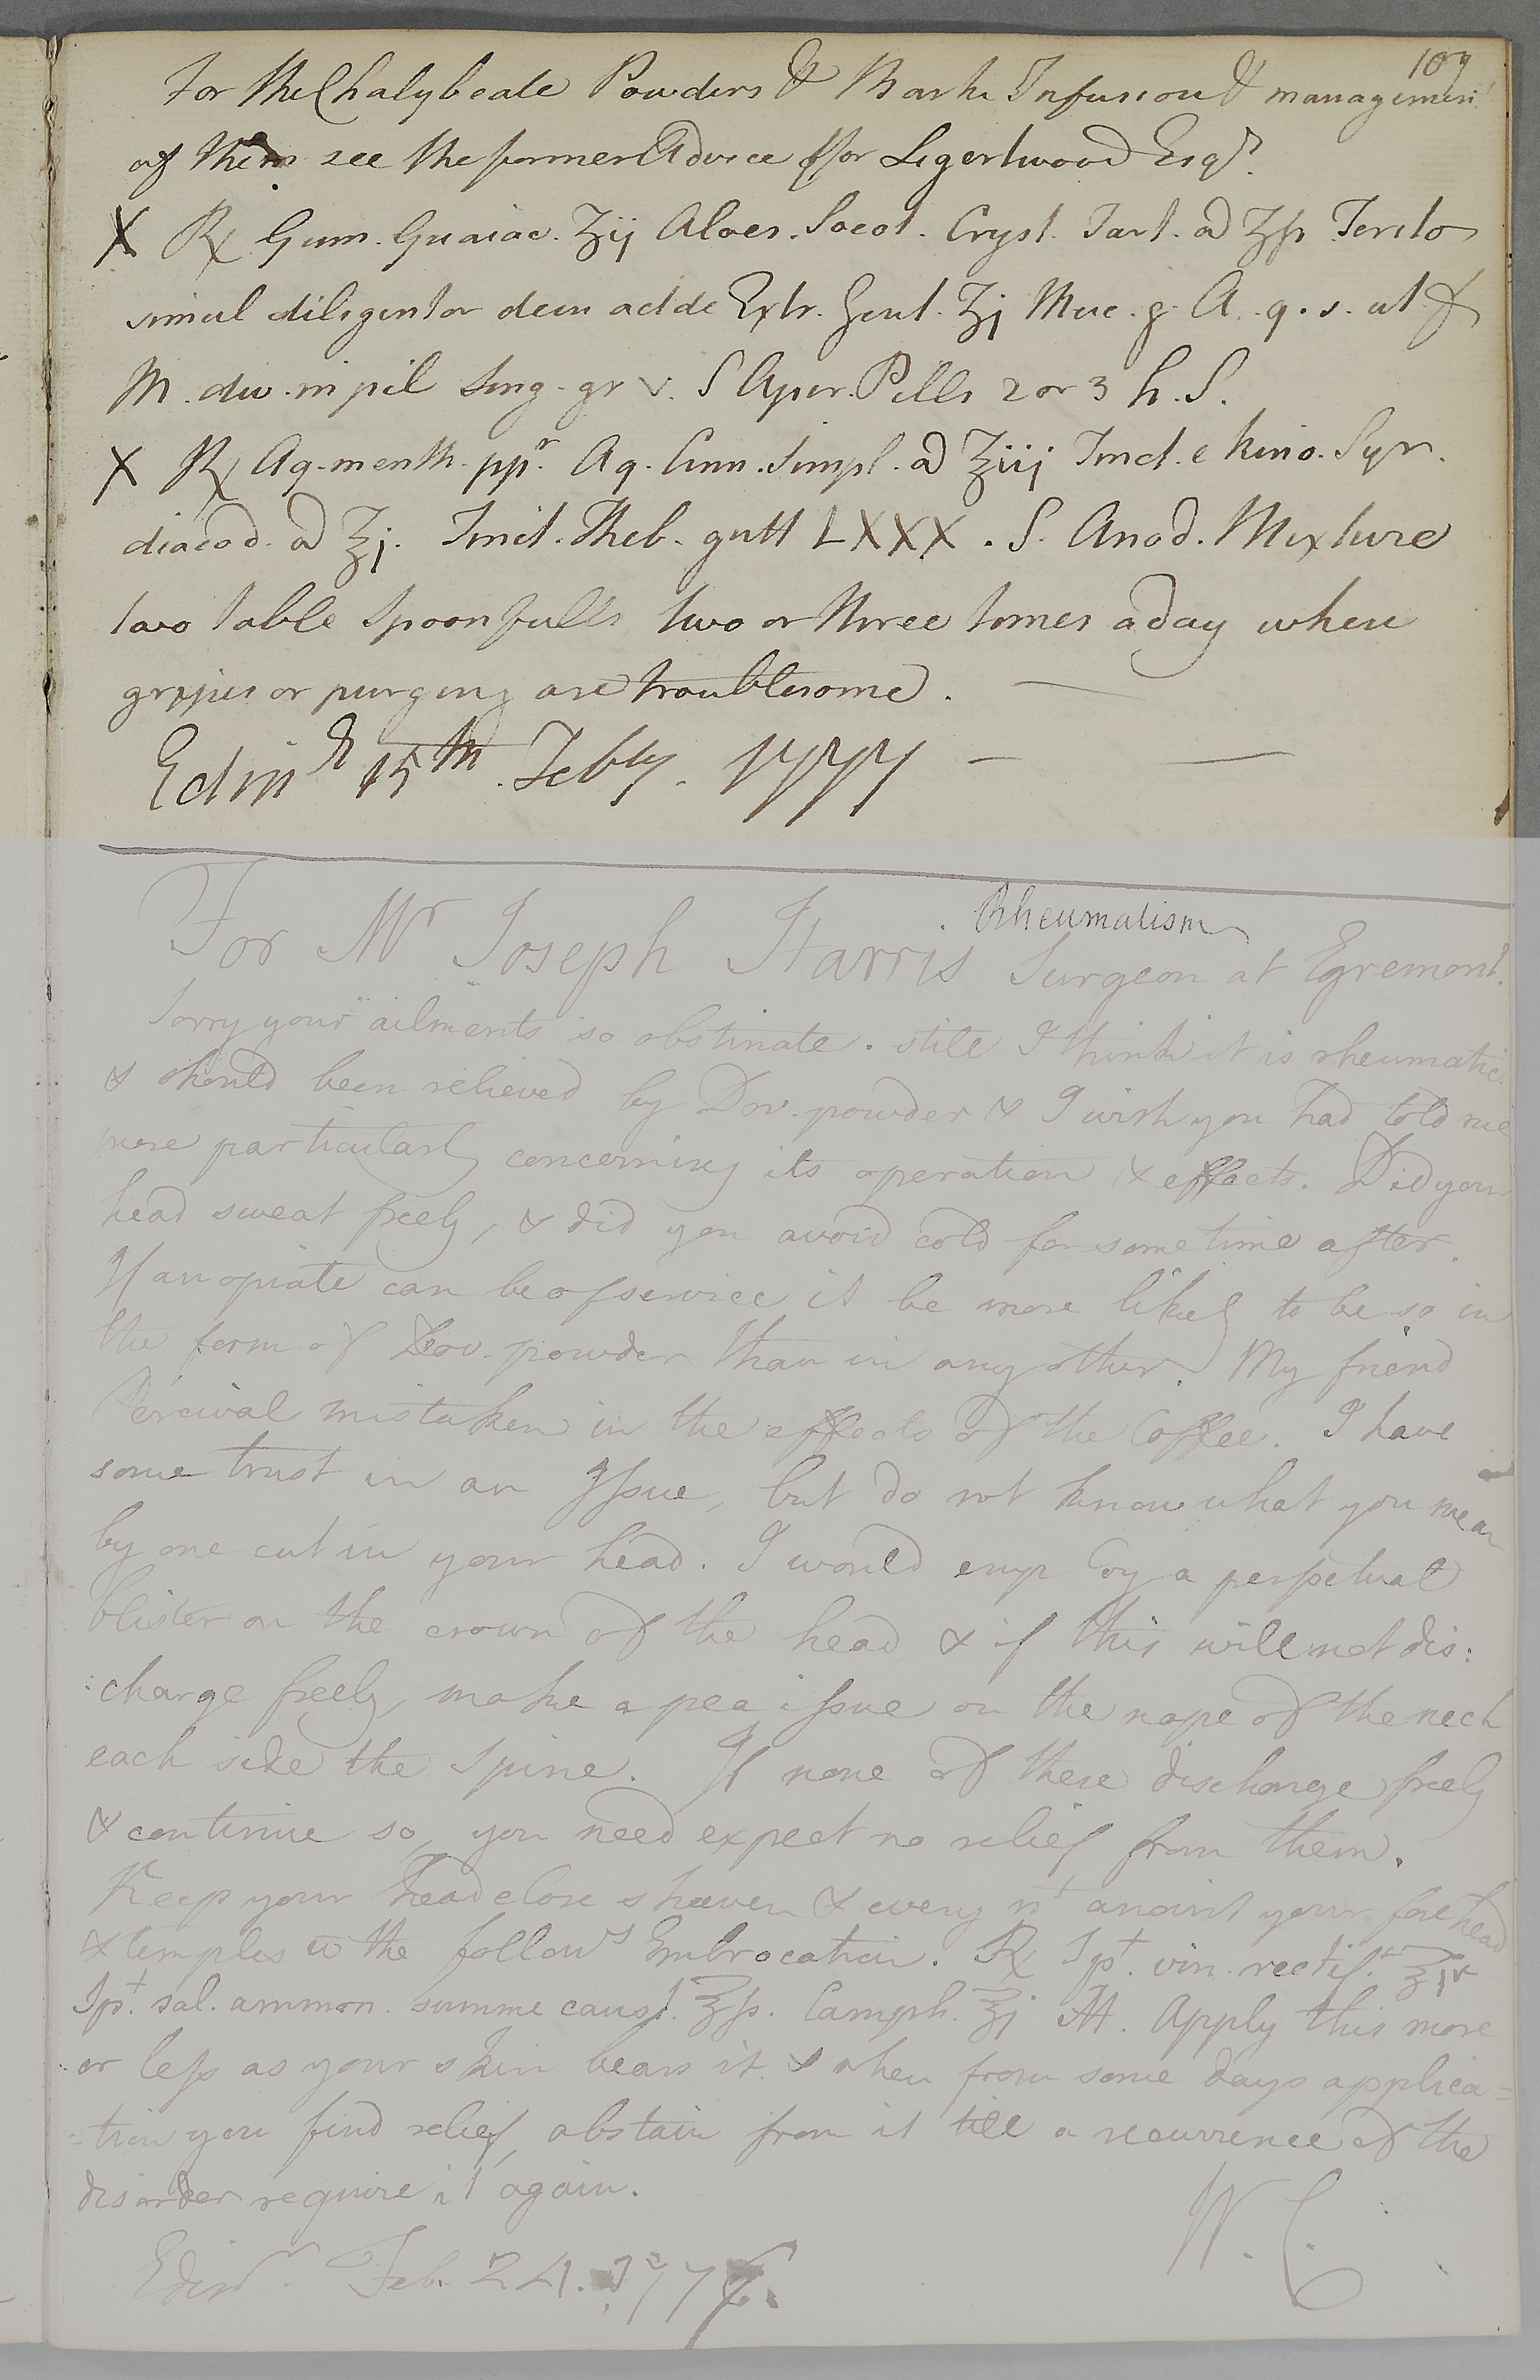 109
For the Chalybeate Powders & Bark Infusion & management
of them see the former Advice for Ligertwood Esqr.
X ℞ Gum. Guaiac. ʒij Aloes. Socot. Cryst. Tart. a ʒſs Terito
simul diligenter dein adde Extr. Gent. ʒj Muc. g. A. q. s. ut f
M. div. in pil sing. gr v. S Aper. Pills 2 or 3 h. S.
X ℞ Aq. menth. ppr. Aq. Cinn. simpl. a ℥iij Tinct. e kino. Syr.
diacod. a ℥j. Tinct. Theb. gutt LXXX. S. Anod. Mixture
two table spoonfulls two or three times a day when
gripes or purging are troublesome.
Edinr 15th. Feby. 1777
Rheumatism
For Mr Joseph Harris Surgeon at Egremont.
Sorry your ailments so obstinate. still I think it is rheumatic
& should been relieved by Dov. powder & I wish you had told me
more particularly concerning its operation & effects. Did your
head sweat freely, & did you avoid cold for some time after.
If an opiate can be of service it be more likely to be so in
the form of Dov. powder than in any other. My friend
Percival mistaken in the effects of the Coffee. I have
some trust in an Issue, but do not know what you mean
by one cut in your head. I would employ a perpetual
blister on the crown of the head & if this will not dis:
:charge freely, make a pea issue on the nape of the neck
each side the Spine. If none of these discharge freely
& continue so, you need expect no relief from them.
Keep your head close shaven & every nt anoint your forehead
& temples w the follows Embrocation. ℞ Spt. vin. rectif. ℥iv
Spt. sal. ammon. summe caust. ℥ſs. Camph. ʒj M. Apply this more
or less as your skin bears it. & when from some days applica=
=tion you find relief, abstain from it till a recurrence of the
disorder require it again.
W. C.
Edinr. Feb. 24. 1777.